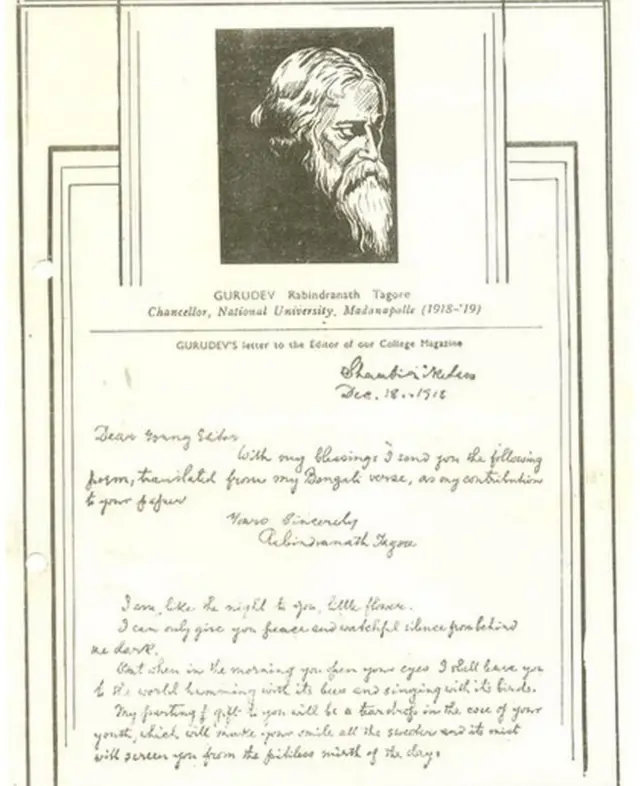 GURUDEV Rabindranath Tagore
Chancellor, National University, Madanapalle (1918–'19)
GURUDEV'S letter to the Editor of our College Magazine
Shantiniketan
Dec. 18. 1918
Dear Young Editor
With my blessings I send you the following
poem, translated from my Bengali verse, as my contribution
to your paper
Yours Sincerely
Rabindranath Tagore
I am like the night to you, little flower.
I can only give you peace and watchful silence from behind
dark.
But when in the morning you open your eyes I shall leave you
to the world humming with its bees and singing with its birds.
My parting gift to you will be a teardrop in the core of your
youth, which will make your smile all the sweeter and its mist
will screen you from the pitiless mirth of the day.